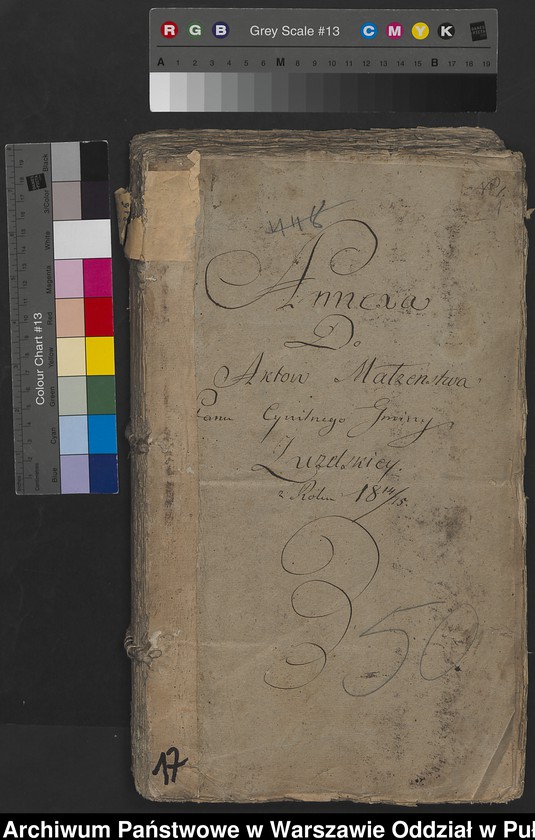 R G B Grey Scale #13 C M Y K
A 1 2 3 4 5 6 M 8 9 10 11 12 13 14 15 B 17 18 19
Colour Chart #13
Blue Cyan Green Yellow Red Magenta White 3/Color Black
448
Annexa
Do
Aktow Małzenstwa
Stanu Cywilnego Gminy
Łuzdskiey.
z Roku 18 14/15.
350
17
Archiwum Państwowe w Warszawie Oddział w Puł